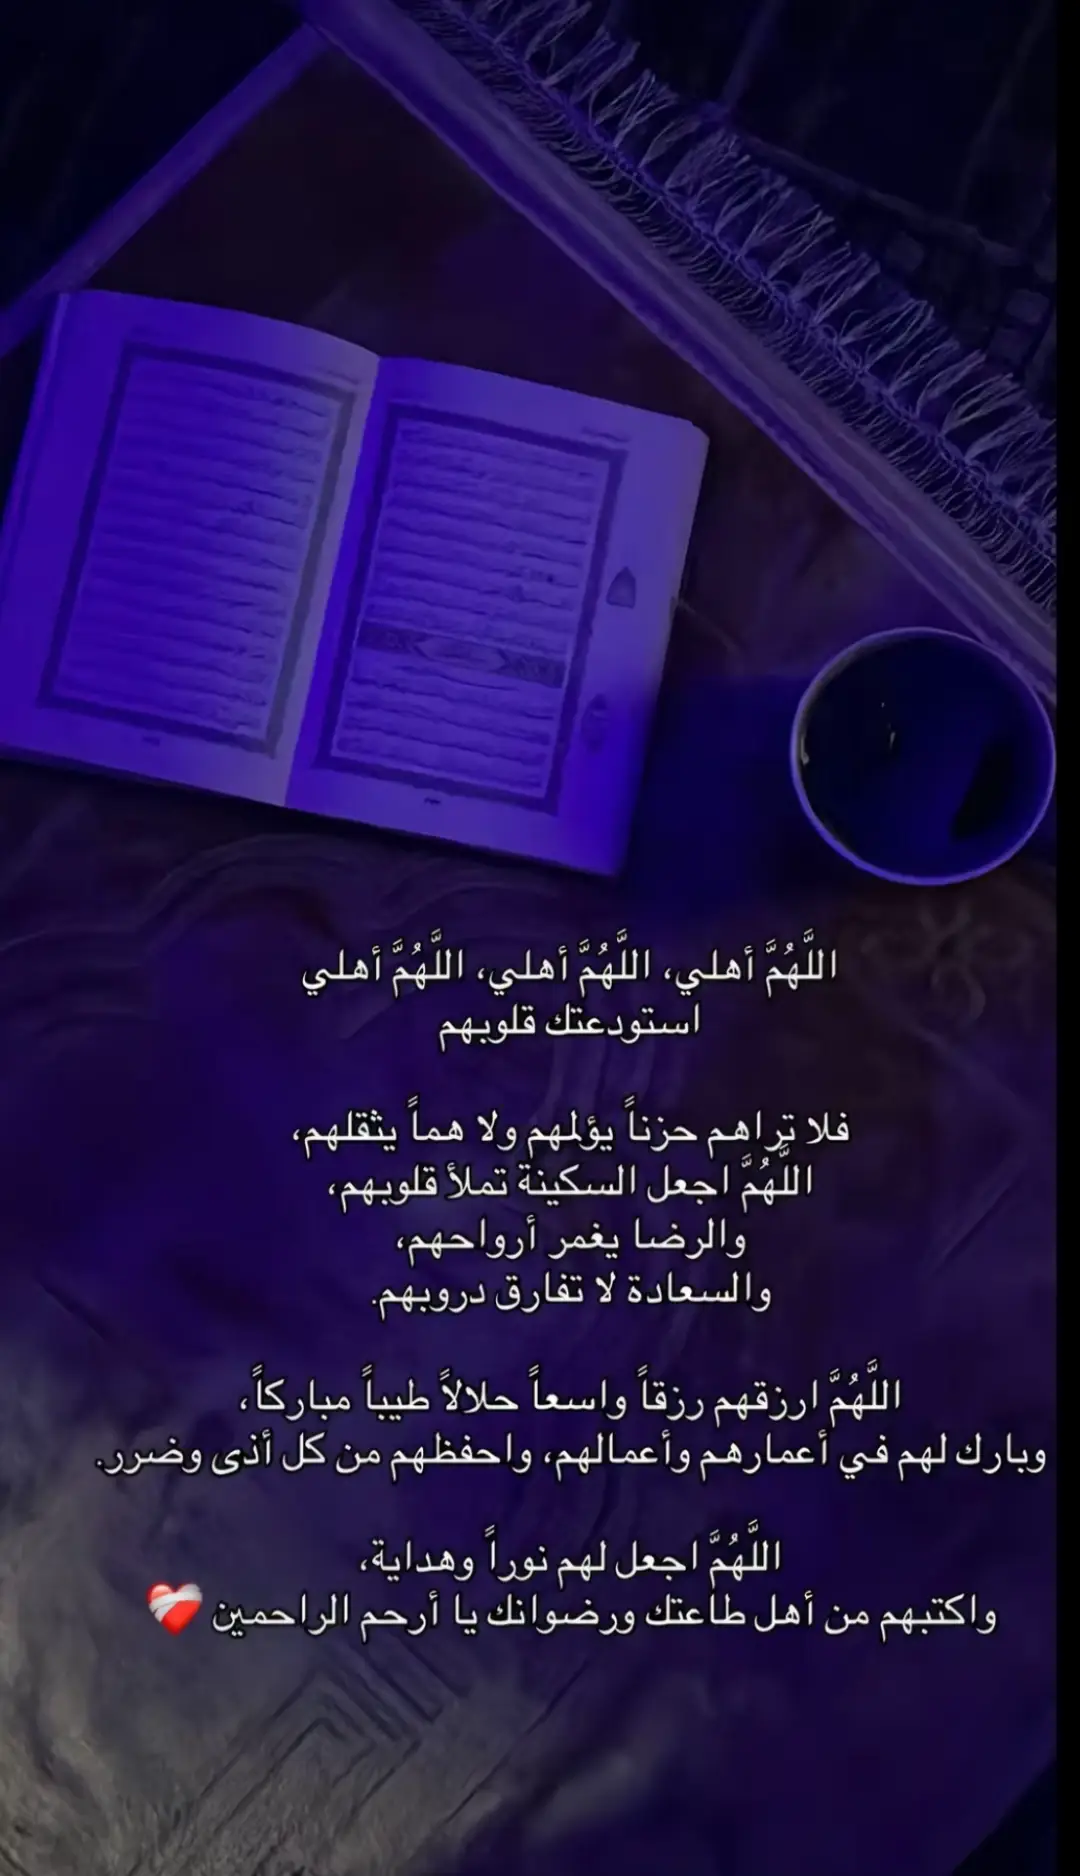 اللَّهُمَّ أهلي، اللَّهُمَّ أهلي، اللَّهُمَّ أهلي
استودعتك قلوبهم
فلا تراهم حزناً يؤلمهم ولا هماً يثقلهم،
اللَّهُمَّ اجعل السكينة تملأ قلوبهم،
والرضا يغمر أرواحهم،
والسعادة لا تفارق دروبهم.
اللَّهُمَّ ارزقهم رزقاً واسعاً حلالاً طيباً مباركاً،
وبارك لهم في أعمارهم وأعمالهم، واحفظهم من كل أذى وضرر.
اللَّهُمَّ اجعل لهم نوراً وهداية،
واكتبهم من أهل طاعتك ورضوانك يا أرحم الراحمين ❤️‍🩹